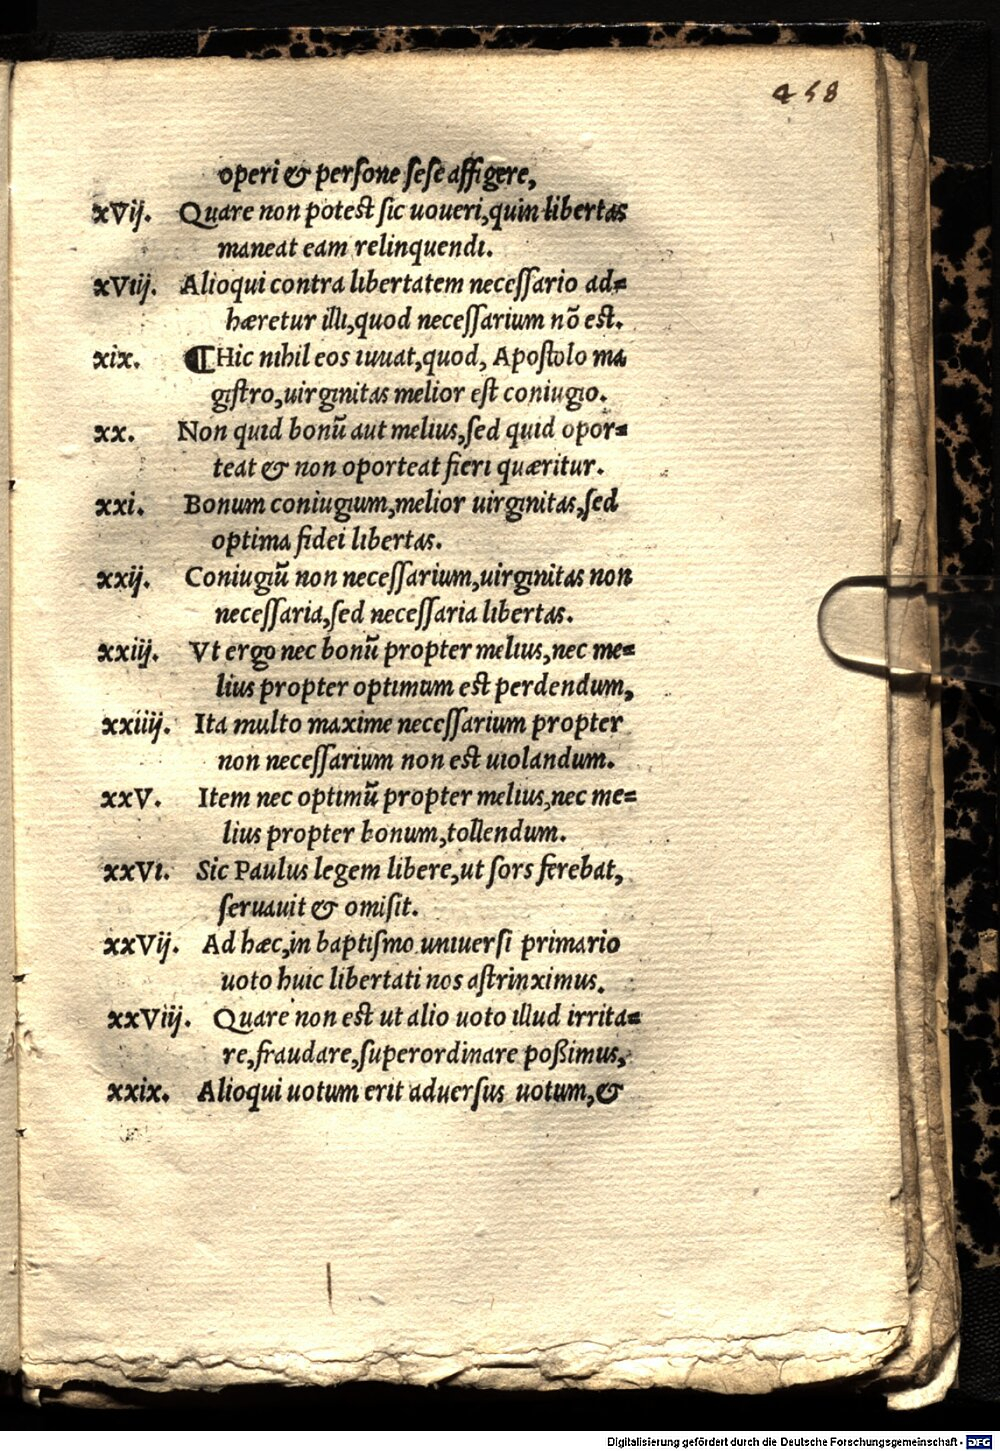 458
operi & persone sese affigere,
xVij. Quare non potest sic uoueri,quin libertas
maneat eam relinquendi.
xViij. Alioqui contra libertatem necessario ad=
hæretur illi,quod necessarium nõ est.
xix. ¶Hic nihil eos iuuat,quod, Apostolo ma
gistro,uirginitas melior est coniugio.
xx. Non quid bonũ aut melius,sed quid opor=
teat & non oporteat fieri quæritur.
xxi. Bonum coniugium,melior uirginitas,sed
optima fidei libertas.
xxij. Coniugiũ non necessarium,uirginitas non
necessaria,sed necessaria libertas.
xxiij. Vt ergo nec bonũ propter melius,nec me=
lius propter optimum est perdendum,
xxiiij. Ita multo maxime necessarium propter
non necessarium non est uiolandum.
xxV. Item nec optimũ propter melius,nec me=
lius propter bonum,tollendum.
xxVi. Sic Paulus legem libere,ut sors ferebat,
seruauit & omisit.
xxVij. Ad hæc,in baptismo uniuersi primario
uoto huic libertati nos astrinximus.
xxViij. Quare non est ut alio uoto illud irrita=
re,fraudare,superordinare poßimus,
xxix. Alioqui uotum erit aduersus uotum,&
Digitalisierung gefördert durch die Deutsche Forschungsgemeinschaft - DFG